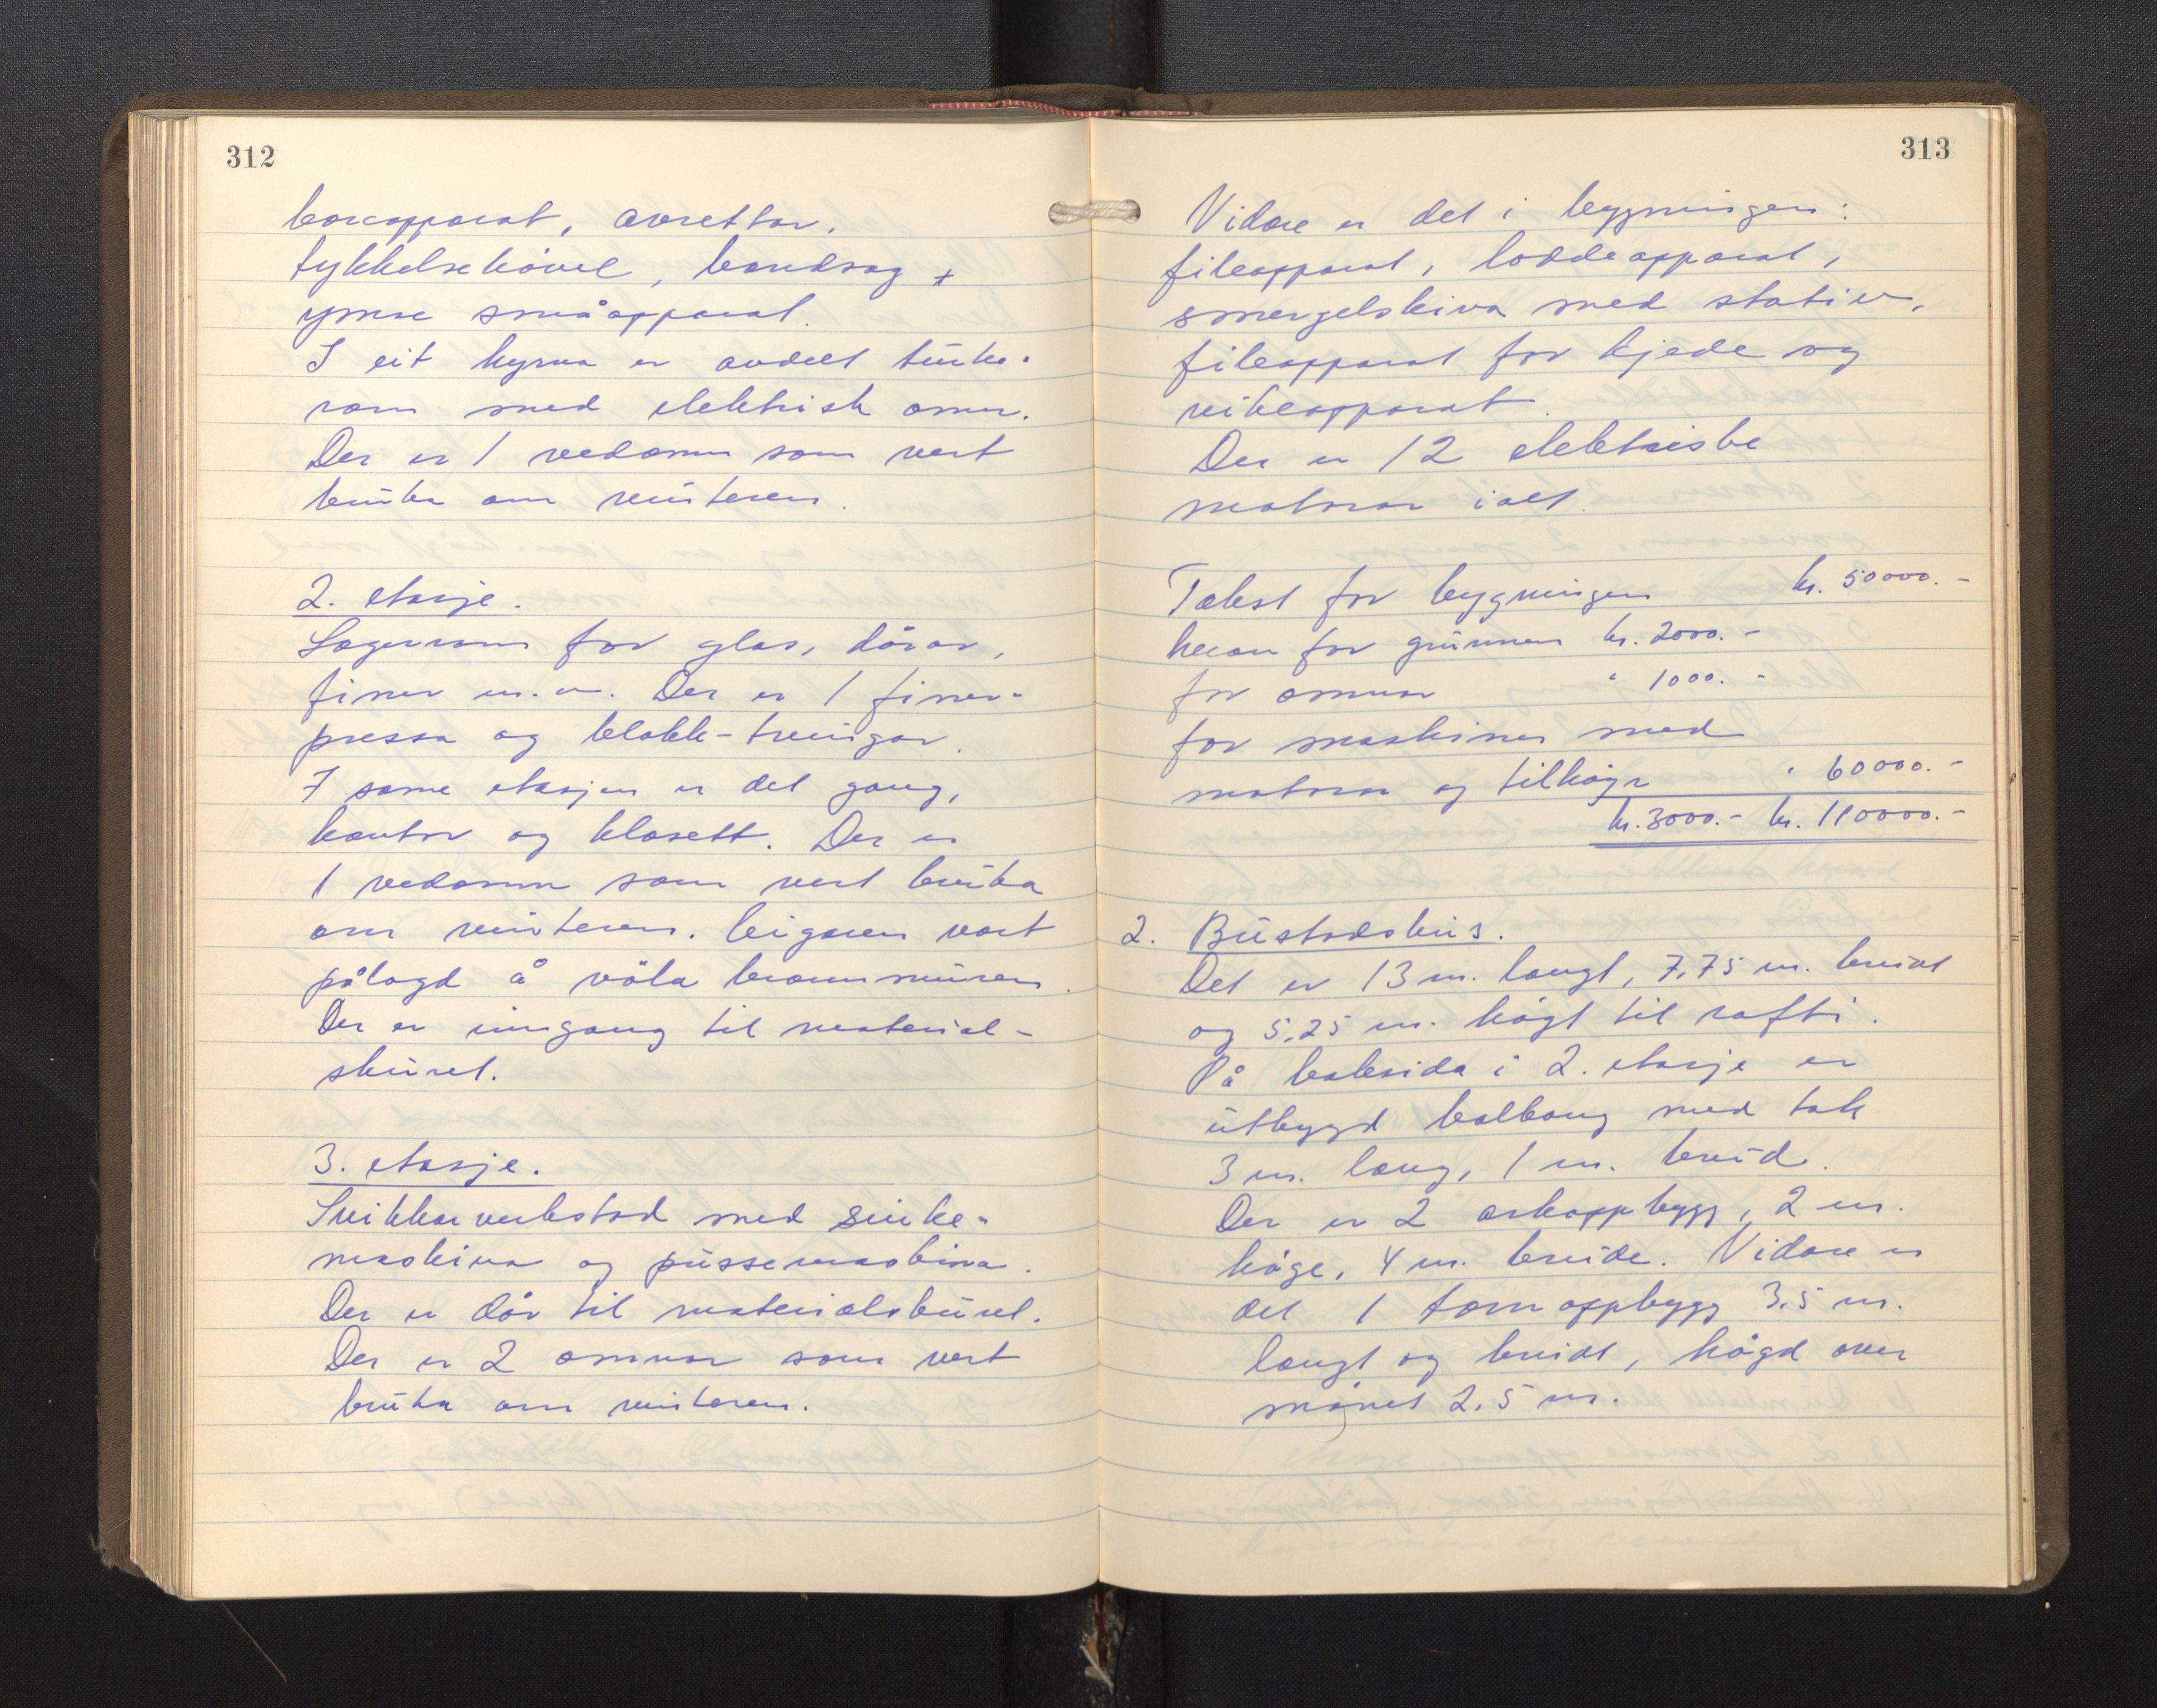 312
boreapparat, avrettar,
tykkelsehövel, bandsag +
ymse småapparat.
I eit hyrna er avdelt turke-
rom med elektrisk omn.
Der er 1 vedomn som vert
bruka om vinteren.
2. etasje.
Lagerrom for glas, dörar,
finer m.v. Der er 1 finer-
pressa og blokk-tvingar.
I same etasjen er det gang,
kontor og klosett. Der er
1 vedomn som vert bruka
om vinteren. Eigaren vart
pålagd å völa brannmuren.
Der er inngang til material-
skuret.
3. etasje.
Snikkarverkstad med sinke-
maskina og pussemaskina.
Der er dör til materialskuret.
Der er 2 omnar som vert
bruka om vinteren.
313
Vidare er det i bygningen:
fileapparat, loddeapparat,
smergelskiva med stativ,
fileapparat for kjede og
vikleapparat.
Der er 12 elektriske
motorar i alt.
Takst for bygningen kr. 50000.-
herav for grunnen kr. 2000.-
for omnar " 1000.-
for maskiner med
motorar og tilhöyr " 60000.-
kr. 3000.- kr. 110000.-
2. Bustadshus.
Det er 13 m. langt, 7,75 m. breidt
og 5,25 m. högt til rafti.
På baksida i 2. etasje er
utbygd balkong med tak
3 m. lang, 1 m. breid.
Der er 2 arkoppbygg, 2 m.
höge, 4 m. breide. Vidare er
det 1 tarnoppbygg 3,5 m.
langt og breidt, högd over
mönet 2,5 m.